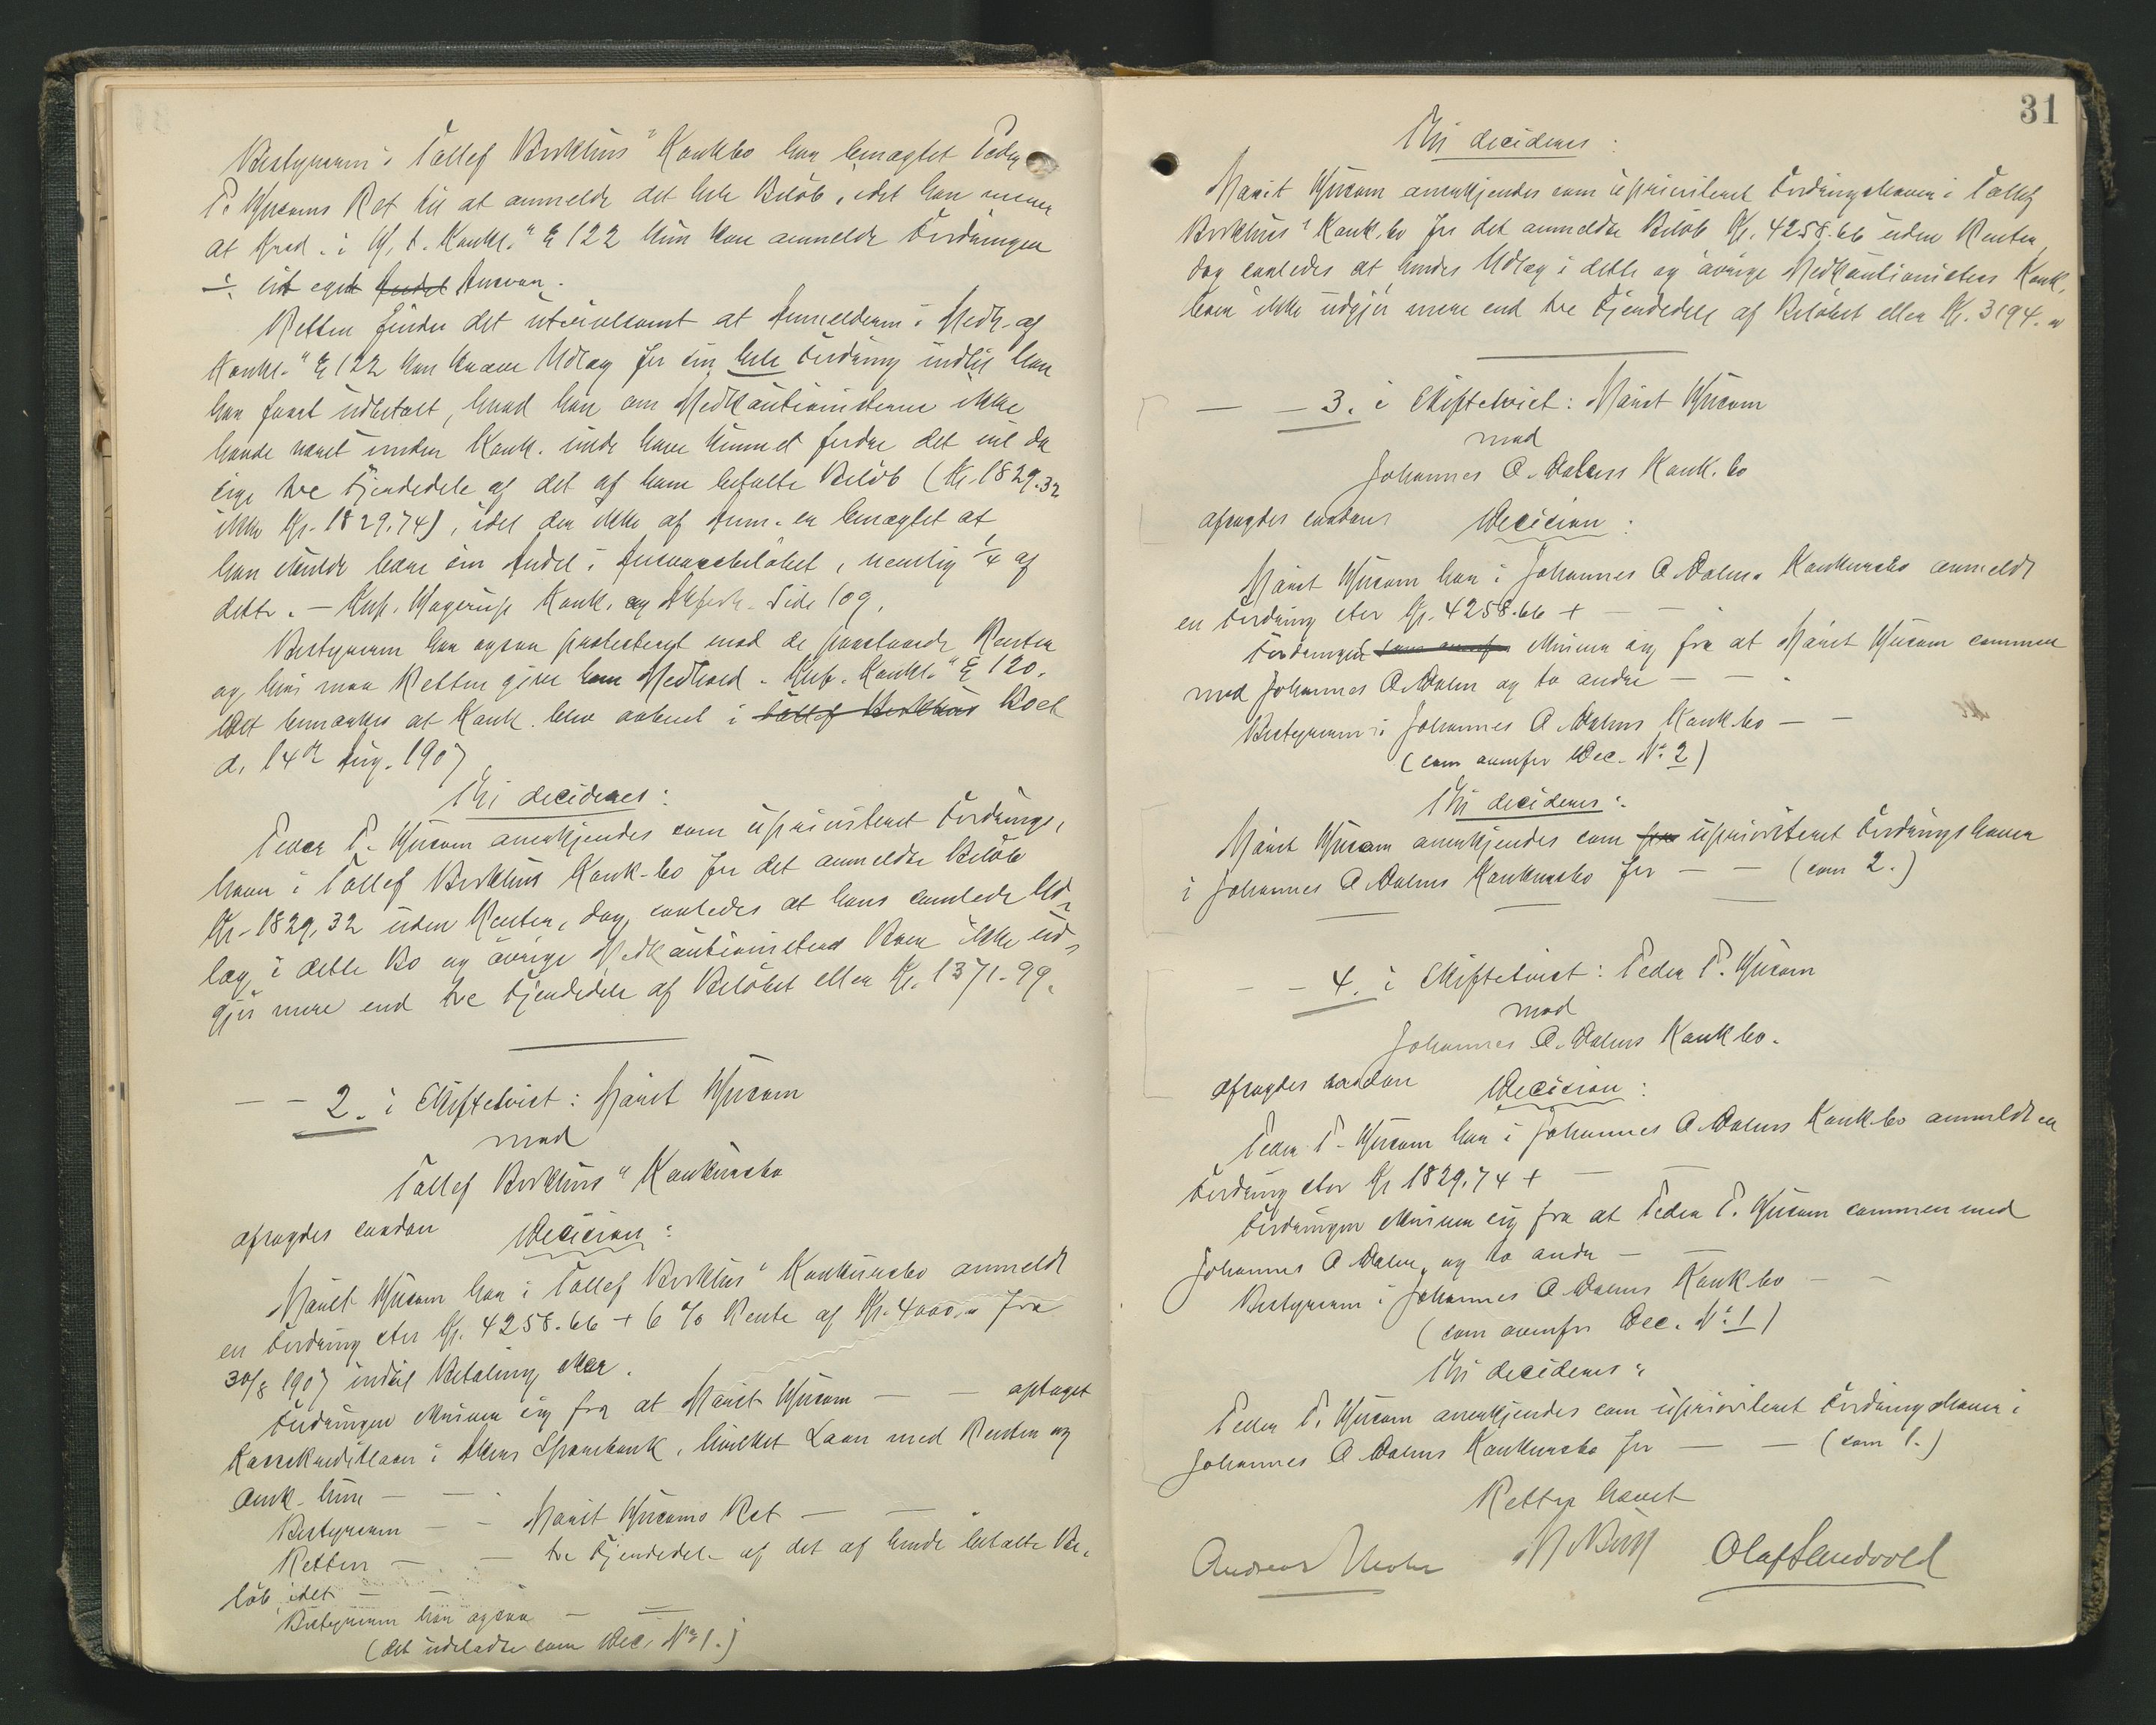 Bestyreren i Tollef Birkhus' Konkbo har benægtet Peder
P. Husoms Ret til at anmelde det hele Beløb, idet han mener
at Kred. i H. t. Konkl. § 122 kun kan anmelde Fordringen
÷ sit eget Andel Ansvar.
Retten finder det utvivlsomt at Anmelderen i Medh. af
Konkl. § 122 kan kræve Udlæg for sin hele Fordring indtil han
har faaet udbetalt, hvad han om Medkautionisterne ikke
havde været under Konk. vilde have kunnet fordre det vil da
sige tre Fjerdedele af det af ham betalte Beløb (Kr. 1829.32
ikke Kr. 1829.74), idet det ikke af Anm. er benægtet at
han skulde bære sin Andel i Ansvarsbeløbet, nemlig 1/4 af
dette. – Knf. Hagerup Konk. og Akfordr. Side 109.
Bestyreren har ogsaa protesteret mod de paastaaede Renter
og heri maa Retten give ham Medhold. Knf. Konkl. § 120.
Det bemærkes at Konk. blev aabnet i Tollef Birkhus Boet
d. 14de Aug. 1907
Thi decideres:
Peder P. Husom anerkjendes som uprioritert Fordrings-
haver i Tollef Birkhus Konk-bo for det anmeldte Beløb
Kr. 1829,32 uden Renter, dog saaledes at hans samlede Ud-
læg i dette Bo og øvrige Medkautionisters Boer ikke ud-
gjør mere end tre Fjerdedele af Beløbet eller Kr. 1371.99.
– – 2. i Skiftetvist: Marit Husom
mod
Tollef Birkhus' Konkursbo
afsagdes saadan Decision:
Marit Husom har i Tollef Birkhus' Konkursbo anmeldt
en Fordring stor Kr. 4258.66 + 6 % Rente af Kr. 4000,- fra
30/8 1907 indtil Betaling sker.
Fordringen skriver sig fra at Marit Husom – – optaget
Kassekreditlaan i Sparebank, hvilket Laan med Renter og
Omk. hun – –
Bestyreren – – Marit Husoms Ret – –
Retten – – tre Fjerdedele af det af hende betalte Be-
løb, idet – –
Bestyreren har ogsaa – –
(det udeladte som Dec. No 1.)
31
Thi decideres:
Marit Husom anerkjendes som uprioriteret Fordringshaver i Tollef
Birkhus' Konk.bo for det anmeldte Beløb Kr. 4258.66 uden Renter,
dog saaledes at hendes Udlæg i dette og øvrige Medkautionisters Konk.
boer ikke udgjør mere end tre Fjerdedele af Beløbet eller Kr. 3194.-
– – 3. i Skiftetvist: Marit Husom
mod
Johannes O. Dalens Konk.bo
afsagdes saadan Decision:
Marit Husom har i Johannes O. Dalens Konkursbo anmeldt
en Fordring stor Kr. 4258.66 + – –
Fordringen skriver sig fra at Marit Husom sammen
med Johannes O. Dalen og to andre – –
Bestyreren i Johannes O. Dalens Konk.bo – –
(som ovenfor Dec. No 2)
Thi decideres:
Marit Husom anerkjendes som for uprioriteret Fordringshaver
i Johannes O. Dalens Konkursbo for – – (som 2.)
– – 4. i Skiftetvist: Peder P. Husom
mod
Johannes O. Dalens Konkbo.
afsagdes saadan Decision:
Peder P. Husom har i Johannes O. Dalens Konk.bo anmeldt en
Fordring stor Kr 1829.74 + – –
Fordringen skriver sig fra at Peder P. Husom sammen med
Johannes O. Dalen og to andre – –
Bestyreren i Johannes O. Dalens Konk.bo – –
(som ovenfor Dec. No 1)
Thi decideres:
Peder P. Husom anerkjendes som uprioriteret Fordringshaver i
Johannes O. Dalens Konkursbo for – – (som 1.)
Retten hævet
Andreas Olaf Sundvold